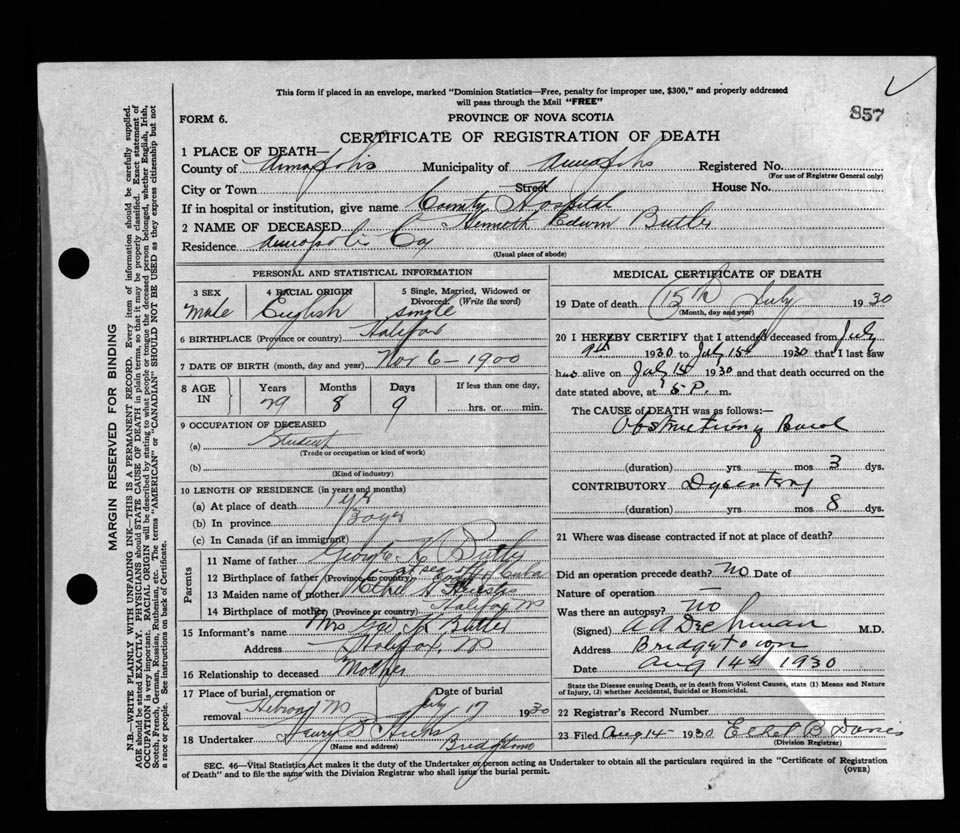 This form if placed in an envelope, marked "Dominion Statistics—Free, penalty for improper use, $300," and properly addressed
will pass through the Mail "FREE"
857
FORM 6.
PROVINCE OF NOVA SCOTIA
CERTIFICATE OF REGISTRATION OF DEATH
1 PLACE OF DEATH—
County of Annapolis Municipality of Annapolis Registered No.
(For use of Registrar General only)
City or Town Street House No.
If in hospital or institution, give name County Hospital
2 NAME OF DECEASED Kenneth Edwin Butler
Residence Annapolis Co
(Usual place of abode)
PERSONAL AND STATISTICAL INFORMATION
3 SEX 4 RACIAL ORIGIN 5 Single, Married, Widowed or
Divorced. (Write the word)
Male English single
6 BIRTHPLACE (Province or country) Halifax
7 DATE OF BIRTH (month, day and year) Nov 6 - 1900
8 AGE IN Years Months Days If less than one day,
29 8 9 hrs. or min.
9 OCCUPATION OF DECEASED
(a) Student
(Trade or occupation or kind of work)
(b)
(Kind of industry)
10 LENGTH OF RESIDENCE (in years and months)
(a) At place of death 1 yr
(b) In province
(c) In Canada (if an immigrant)
Parents
11 Name of father George K Butler
12 Birthplace of father (Province or country) at sea coast of Cuba
13 Maiden name of mother Ethel
14 Birthplace of mother (Province or country) Halifax NS
15 Informant's name Mrs Geo K Butler
Address Halifax, NS
16 Relationship to deceased Mother
17 Place of burial, cremation or Date of burial
removal Hebron NS July 17 1930
18 Undertaker Henry S Hicks
(Name and address) Bridgetown
MEDICAL CERTIFICATE OF DEATH
19 Date of death 15th July 1930
(Month, day and year)
20 I HEREBY CERTIFY that I attended deceased from July
9th 1930 to July 15th 1930 that I last saw
him alive on July 14 1930 and that death occurred on the
date stated above, at 5 P. m.
The CAUSE of DEATH was as follows:—
Obstruction of Bowel
(duration) yrs mos 3 dys.
CONTRIBUTORY Dysentery
(duration) yrs mos 8 dys.
21 Where was disease contracted if not at place of death?
Did an operation precede death? no Date of
Nature of operation
Was there an autopsy? no
(Signed) A A Dechman M.D.
Address Bridgetown
Date Aug 14th 1930
State the Disease causing Death, or in death from Violent Causes, state (1) Means and Nature
of Injury, (2) whether Accidental, Suicidal or Homicidal.
22 Registrar's Record Number
23 Filed Aug 14 - 1930 Ethel B Davies
(Division Registrar)
SEC. 46—Vital Statistics Act makes it the duty of the Undertaker or person acting as Undertaker to obtain all the particulars required in the "Certificate of Registration
of Death" and to file the same with the Division Registrar who shall issue the burial permit.
(OVER)
MARGIN RESERVED FOR BINDING
N.B.—WRITE PLAINLY WITH UNFADING INK—THIS IS A PERMANENT RECORD. Every item of information should be carefully supplied.
AGE should be stated EXACTLY. PHYSICIANS should STATE CAUSE OF DEATH in plain terms, so that it may be properly classified. Exact statement of
OCCUPATION is very important. RACIAL ORIGIN will be described by stating to what people or tongue the deceased person belonged, whether English, Irish,
Scotch, French, German, Russian, Ruthenian, etc. The terms "AMERICAN" or "CANADIAN" SHOULD NOT BE USED as they express citizenship but not
a race or people. See instructions on back of Certificate.